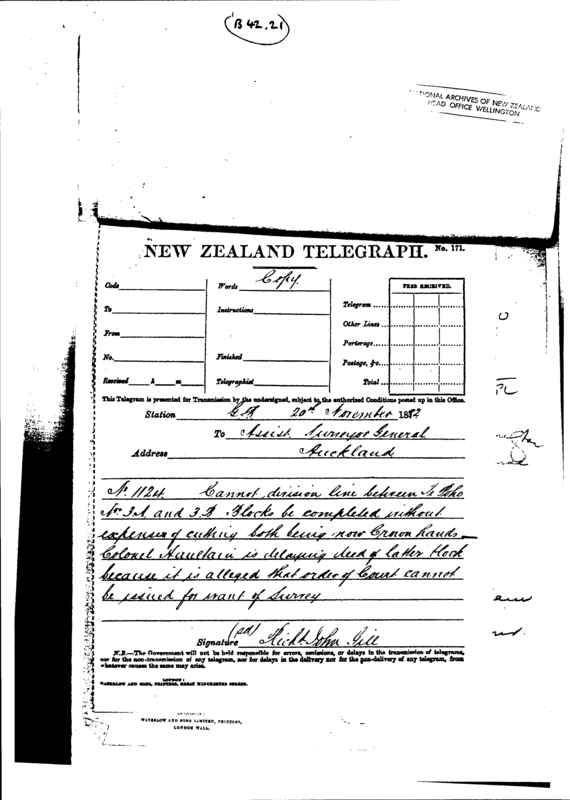 B 42.21
NATIONAL ARCHIVES OF NEW ZEALAND
HEAD OFFICE WELLINGTON
NEW ZEALAND TELEGRAPH. No. 171.
Copy.
Code
Words
FEES RECEIVED.
To
Instructions
Telegram
Other Lines
From
Porterage
No.
Finished
Postage, &c.
Received h m
Telegraphist
Total
This Telegram is presented for Transmission by the undersigned, subject to the authorized Conditions posted up in this Office.
Station 20th November 1882
To Assist. Surveyor General
Address Auckland
No. 1124. Cannot division line between
Nos. 3A and 3B Blocks be completed without
expenses of cutting both being now Crown hands.
Colonel Haultain is delaying deed of latter block
because it is alleged that order of Court cannot
be issued for want of Survey
Signature (sd) Richd John Gill
N.B.—The Government will not be held responsible for errors, omissions, or delays in the transmission of telegrams,
nor for the non-transmission of any telegram, nor for delays in the delivery nor for the non-delivery of any telegram, from
whatever causes the same may arise.
LONDON:
WATERLOW AND SONS, PRINTERS, GREAT WINCHESTER STREET.
WATERLOW AND SONS LIMITED, PRINTERS,
LONDON WALL.